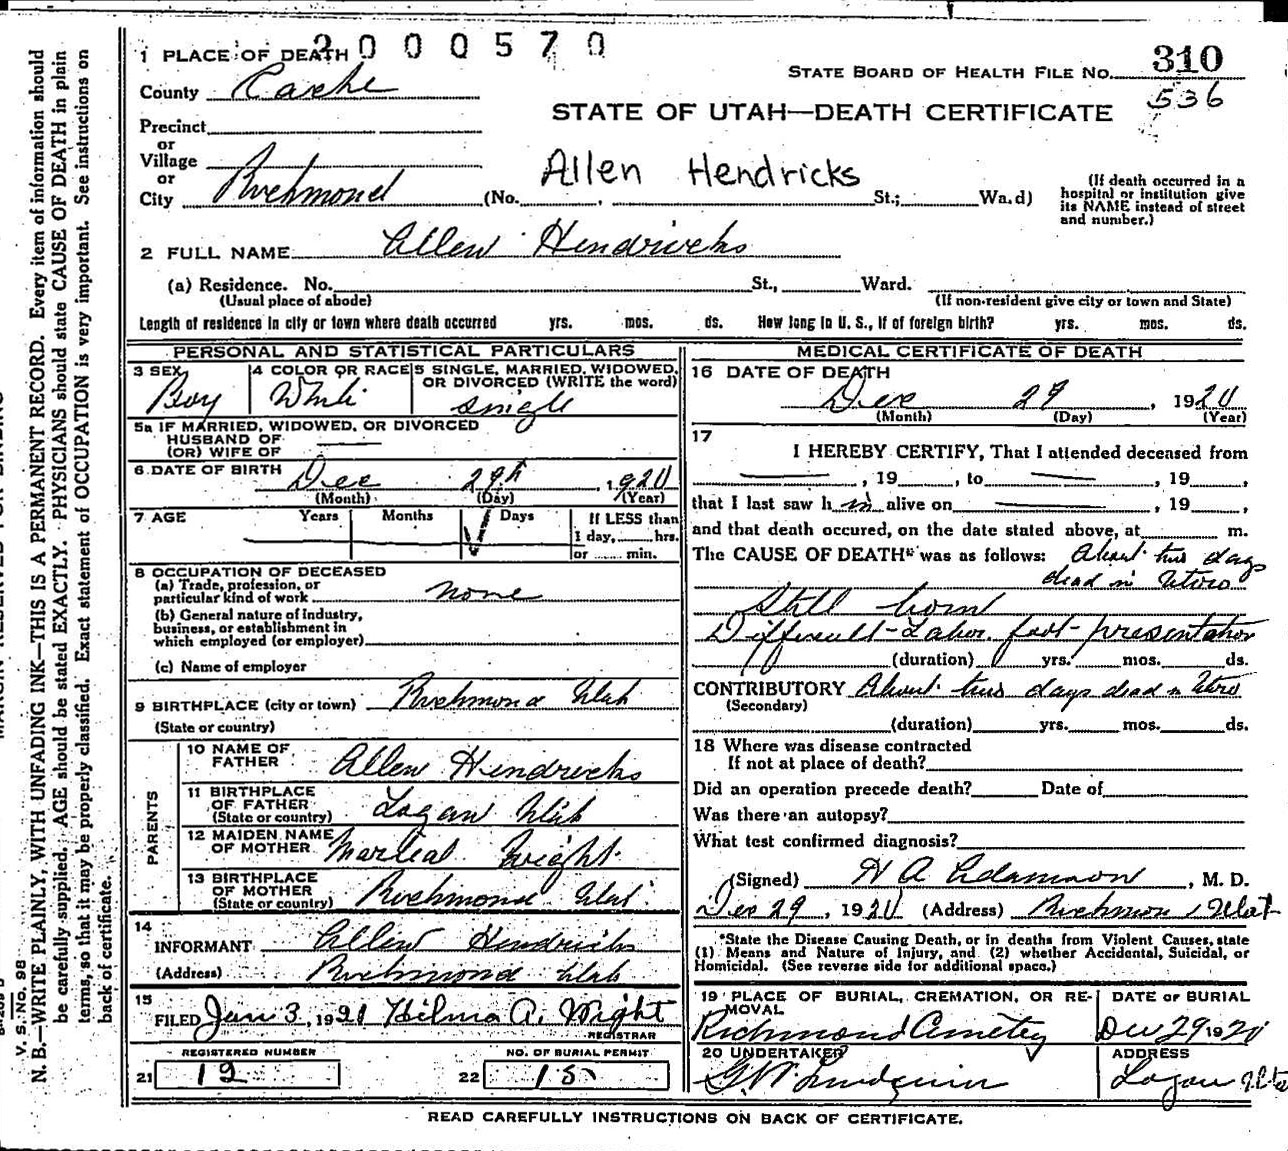 2000570
1 PLACE OF DEATH
STATE BOARD OF HEALTH FILE NO. 310
536
County Cache
STATE OF UTAH—DEATH CERTIFICATE
Precinct
or
Village
or
City Richmond (No. , St.; Wa.d)
Allen Hendricks
(If death occurred in a
hospital or institution give
its NAME instead of street
and number.)
2 FULL NAME Allen Hendricks
(a) Residence. No. St., Ward.
(Usual place of abode) (If non-resident give city or town and State)
Length of residence in city or town where death occurred yrs. mos. ds. How long in U. S., if of foreign birth? yrs. mos. ds.
PERSONAL AND STATISTICAL PARTICULARS
3 SEX Boy
4 COLOR OR RACE White
5 SINGLE, MARRIED, WIDOWED,
OR DIVORCED (WRITE the word)
single
5a IF MARRIED, WIDOWED, OR DIVORCED
HUSBAND OF
(OR) WIFE OF
6 DATE OF BIRTH Dec 29th, 1920
(Month) (Day) (Year)
7 AGE Years Months Days If LESS than
1 day, hrs.
or min.
8 OCCUPATION OF DECEASED
(a) Trade, profession, or
particular kind of work none
(b) General nature of industry,
business, or establishment in
which employed (or employer)
(c) Name of employer
9 BIRTHPLACE (city or town) Richmond Utah
(State or country)
PARENTS
10 NAME OF
FATHER Allen Hendricks
11 BIRTHPLACE
OF FATHER Logan Utah
(State or country)
12 MAIDEN NAME
OF MOTHER
13 BIRTHPLACE
OF MOTHER Richmond Utah
(State or country)
14
INFORMANT Allen Hendricks
(Address) Richmond Utah
15
FILED Jan 3, 1921 Hilma A. Wright
REGISTRAR
REGISTERED NUMBER NO. OF BURIAL PERMIT
21 12 22 15
MEDICAL CERTIFICATE OF DEATH
16 DATE OF DEATH
Dec 29, 1920
(Month) (Day) (Year)
17
I HEREBY CERTIFY, That I attended deceased from
, 19 , to , 19 ,
that I last saw h im alive on , 19 ,
and that death occured, on the date stated above, at m.
The CAUSE OF DEATH* was as follows: About two days
dead in Utero
Still born
Difficult-Labor. foot-presentation
(duration) yrs. mos. ds.
CONTRIBUTORY About two days dead in Utero
(Secondary)
(duration) yrs. mos. ds.
18 Where was disease contracted
If not at place of death?
Did an operation precede death? Date of
Was there an autopsy?
What test confirmed diagnosis?
(Signed) H A Adamson, M. D.
Dec 29, 1920 (Address) Richmond, Utah
*State the Disease Causing Death, or in deaths from Violent Causes, state
(1) Means and Nature of Injury, and (2) whether Accidental, Suicidal, or
Homicidal. (See reverse side for additional space.)
19 PLACE OF BURIAL, CREMATION, OR RE-
MOVAL
Richmond Cemetery
DATE OF BURIAL
Dec 29 1920
20 UNDERTAKER
G. W. Lindquist
ADDRESS
Logan Utah
READ CAREFULLY INSTRUCTIONS ON BACK OF CERTIFICATE.
V. S. No. 98
N. B.—WRITE PLAINLY, WITH UNFADING INK—THIS IS A PERMANENT RECORD. Every item of information should
be carefully supplied. AGE should be stated EXACTLY. PHYSICIANS should state CAUSE OF DEATH in plain
terms, so that it may be properly classified. Exact statement of OCCUPATION is very important. See instructions on
back of certificate.